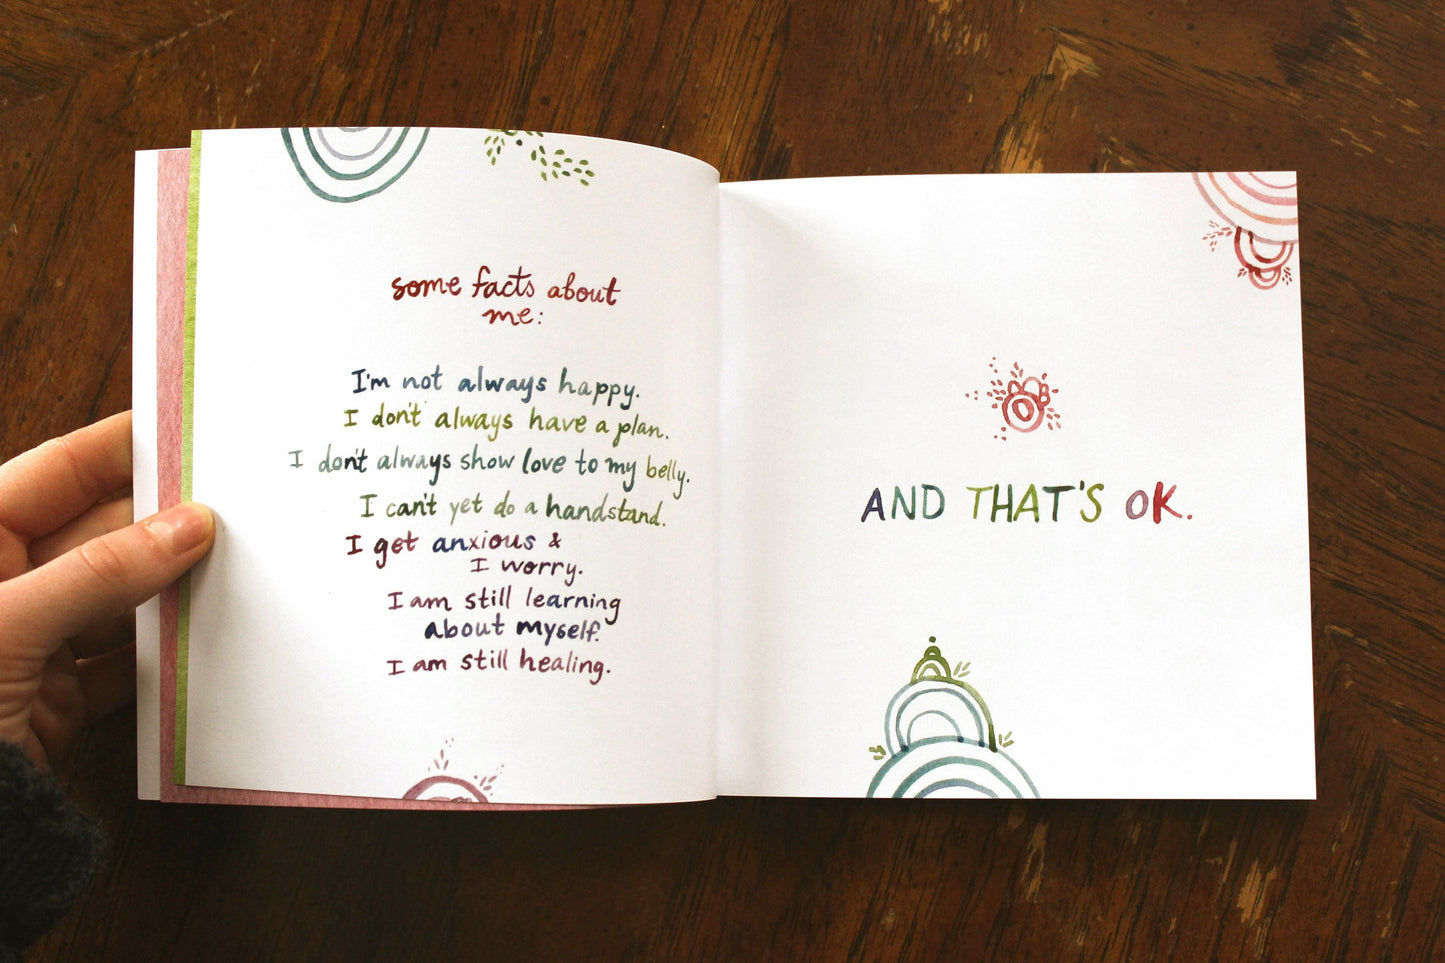 some facts about
me:
I'm not always happy.
I don't always have a plan.
I don't always show love to my belly.
I can't yet do a handstand.
I get anxious &
I worry.
I am still learning
about myself.
I am still healing.
AND THAT'S OK.